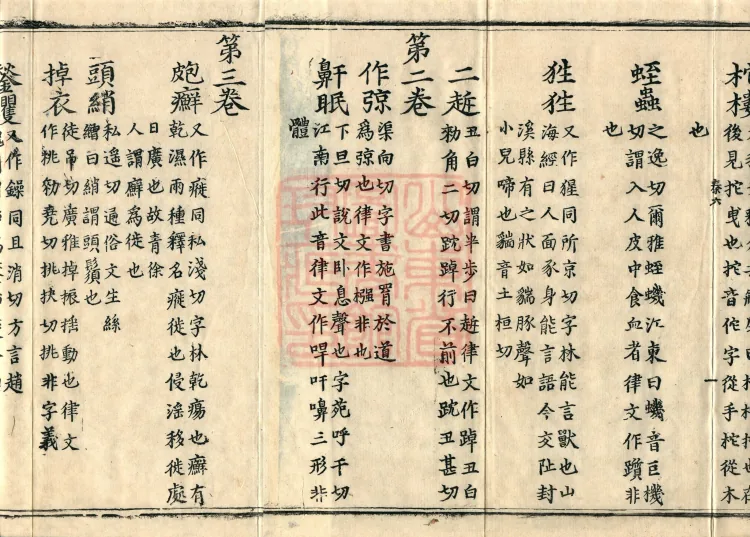 後見拕曳也拕音佗字從手拕從木
也
泰六
一
蛭蟲 之逸切爾雅蛭蟣江東曰蟣音巨機
切謂入人皮中食血者律文作蹟非
也
狌狌 又作猩同所京切字林能言獸也山
海經曰人面豕身能言語今交阯封
溪縣有之狀如貒豚聲如
小兒啼也貒音土桓切
二䞣 丑白切謂半步曰䞣律文作踔丑白
勑角二切䟜踔行不前也䟜丑甚切
第二卷
作弶 渠向切字書施罥於道
為弶也律文作摾非也
鼾眠 下旦切說文臥息聲也字苑呼干切
江南行此音律文作哻吁嚊三形非
體
第三卷
皰癬 又作㾌同私淺切字林乾瘍也癬有
乾濕兩種釋名㾌徙也侵淫移徙處
日廣也故青徐
人謂癬為徙也
頭綃 私遙切通俗文生絲
繒曰綃謂頭鬚也
掉衣 徒吊切廣雅掉振搖動也律文
作挑勑堯切挑抉切挑非字義
又作鐰同且消切方言趙